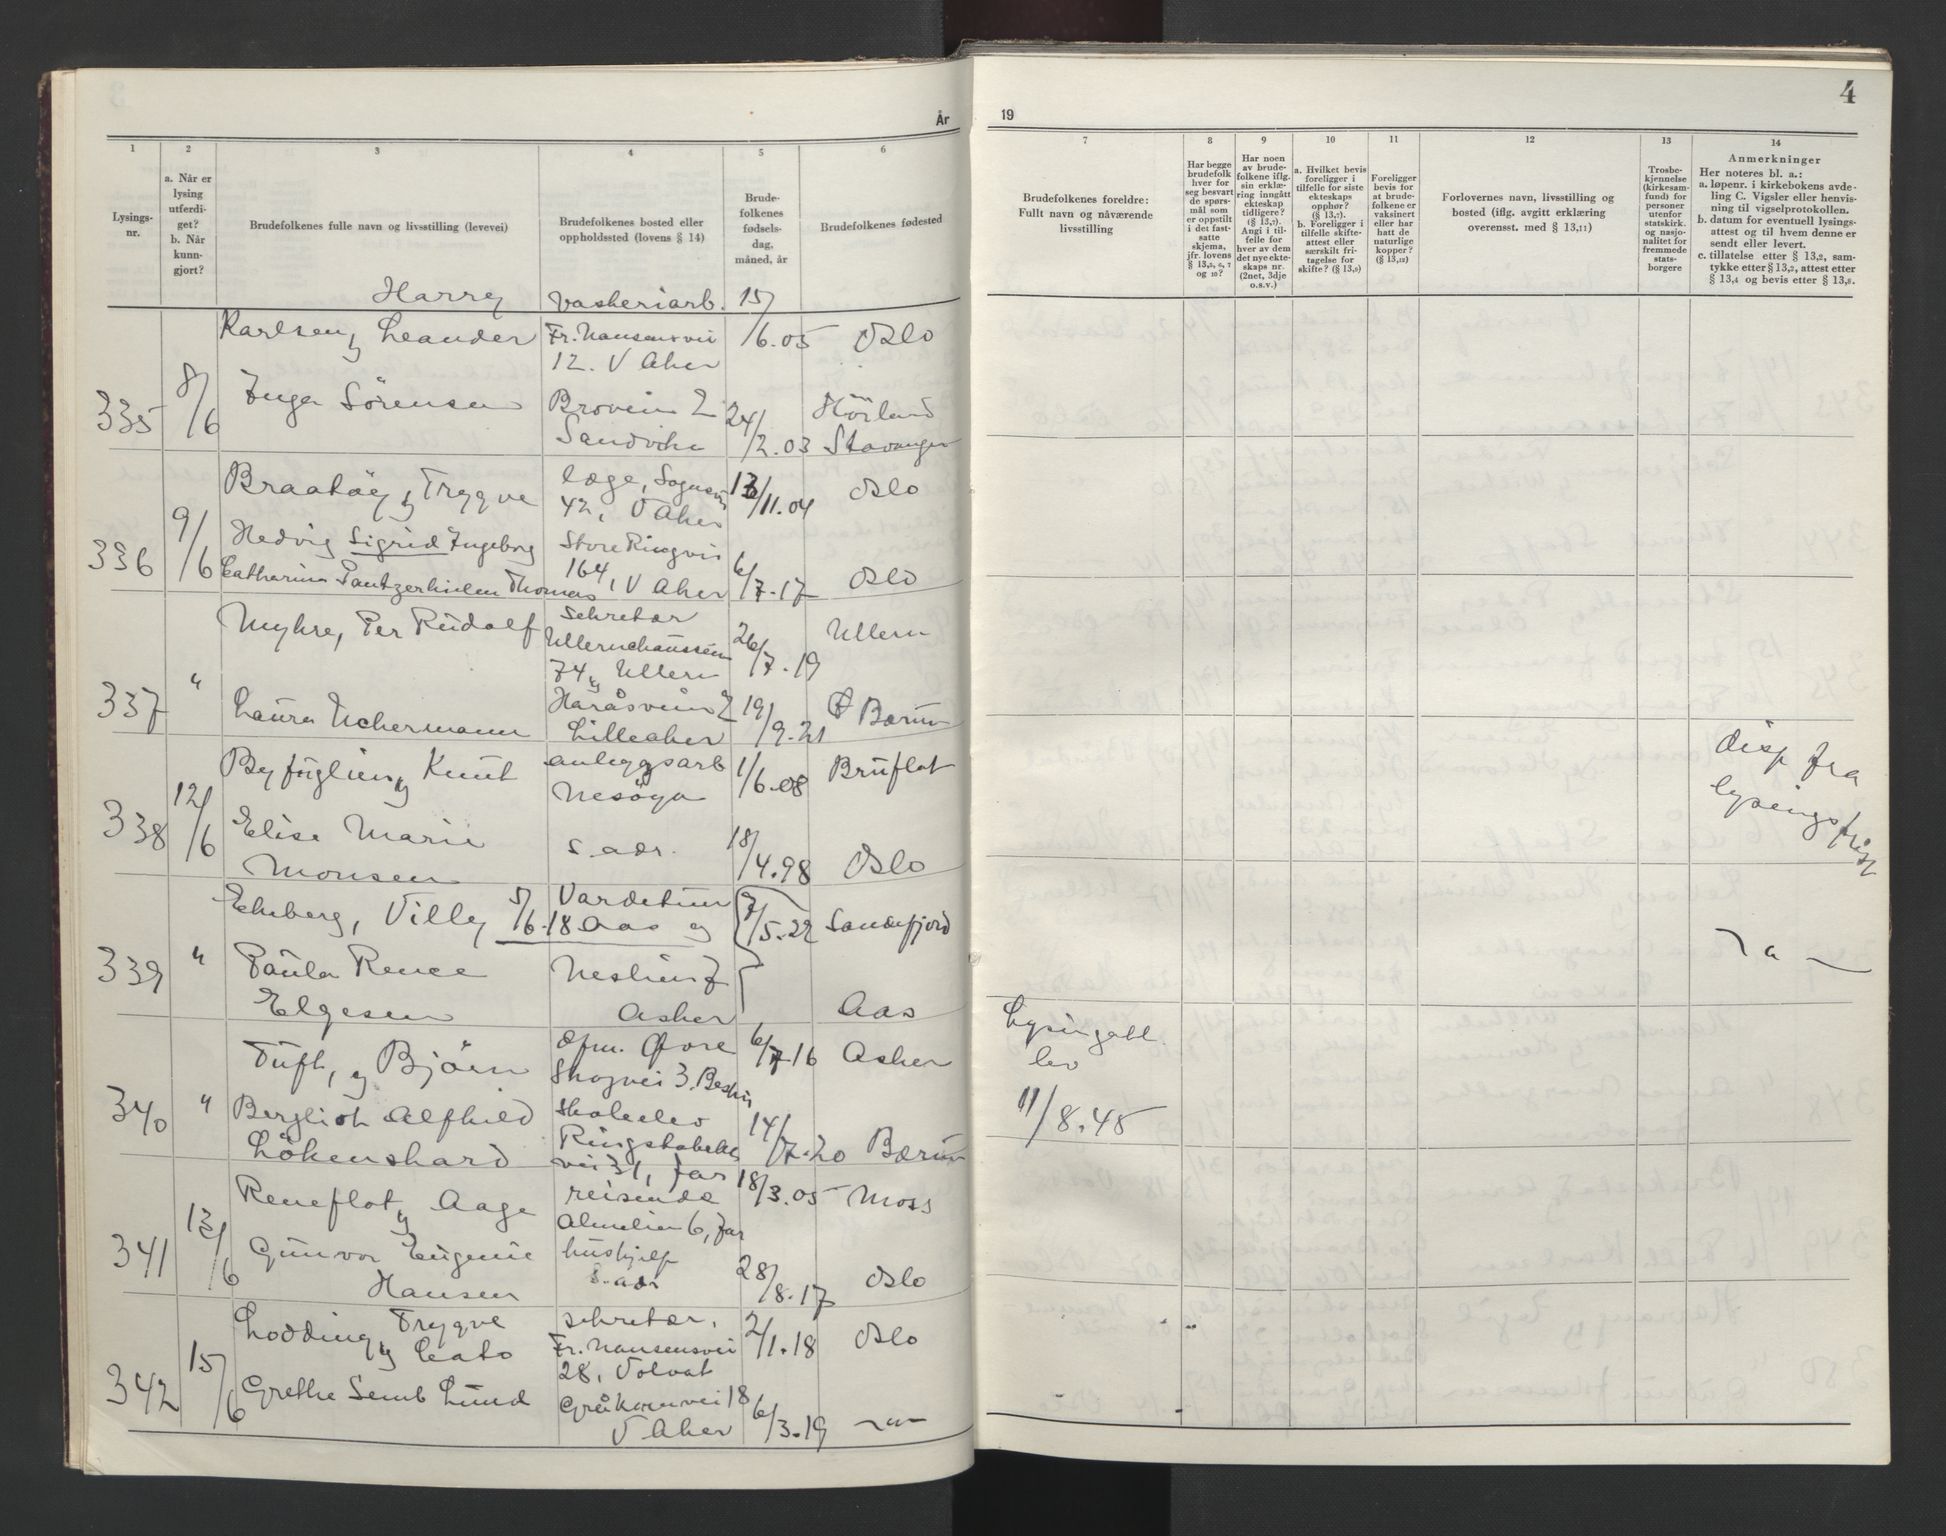 År
1
2
3
4
5
6
Lysings-
nr.
a. Når er
lysing
utferdi-
get?
b. Når
kunn-
gjort?
Brudefolkenes fulle navn og livsstilling (levevei)
Brudefolkenes bosted eller
oppholdssted (lovens § 14)
Brude-
folkenes
fødsels-
dag,
måned, år
Brudefolkenes fødested
335
8/6
Karlsen, Harry Leander
og
vaskeriarb.
Fr. Nansensvei
12. V Aker
15/6.05
Oslo
Inga Sörensen
Brovein 2
Sandvika
24/2.03
Hörland
Stavanger
336
9/6
Braatöy, Trygve
og
læge, Sognsvn
42, V Aker
/11.04
Oslo
Hedvig Sigrid Ingeborg
Catharina Thomas
Store Ringvei
164, V Aker
6/7.17
Oslo
337
"
Myhre, Per Rudolf
og
sekretær
Ullernchausséen
74, Ullern
26/7.19
Ullern
Laura Uchermann
Haråsveien 2
Lilleaker
19/9.21
Bærum
338
12/6
Byfuglien, Knut
og
anleggsarb
Nesöya
1/6.08
Bruflat
Elise Marie
Monsen
s. adr.
18/4.98
Oslo
339
"
Ekeberg, Villy 5/6.18
og
Vardetun
Aas
7/5.22
Sandefjord
Paula Renee
Elgesen
Neslien 7
Asker
Aas
340
"
Tuft, Björn
og
Øvre
Skogvei 3. Bestun
6/7.16
Asker
Bergliot Alfhild
Lökenskard
skoleelev
Ringstabekk
vei 31, Jar
14/7.20
Bærum
341
13/6
Reneflot, Aage
og
reisende
Almelien 6, Jar
18/3.05
Moss
Gunvor Eugenie
Hansen
hushjelp
s. adr
28/8.17
Oslo
342
15/6
Lodding, Trygve
og Cato
sekretær,
Fr. Nansensvei
28, Volvat
2/1.18
Oslo
Grethe Semb Lund
Gråkamvei 18
V Aker
6/3.19
— " —
19
4
7
8
9
10
11
12
13
14
Brudefolkenes foreldre:
Fullt navn og nåværende
livsstilling
Har begge
brudefolk
hver for
seg besvart
de spørs-
mål som
er oppstilt
i det fast-
satte
skjema,
jfr. lovens
§ 13,5, 6, 7
og 10?
Har noen
av brude-
folkene iflg.
sin erklæ-
ring inngått
ekteskap
tidligere?
(§ 13,7).
Angi i til-
felle for
hver av dem
det nye ekte-
skaps nr.
(2net, 3dje
o.s.v.)
a. Hvilket bevis
foreligger i
tilfelle for siste
ekteskaps
opphør?
(§ 13,7).
b. Foreligger i
tilfelle skifte-
attest eller
særskilt fri-
tagelse for
skifte? (§ 13,9)
Foreligger
bevis for
at brude-
folkene er
vaksinert
eller har
hatt de
naturlige
kopper?
(§ 13,12)
Forlovernes navn, livsstilling og
bosted (iflg. avgitt erklæring
overensst. med § 13,11)
Trosbe-
kjennelse
(kirkesam-
fund) for
personer
utenfor
statskirk.
og nasjo-
nalitet for
fremmede
stats-
borgere
Anmerkninger
Her noteres bl. a.:
a. løpenr. i kirkebokens avde-
ling C. Vigsler eller henvis-
ning til vigselprotokollen.
b. datum for eventuell lysings-
attest og til hvem denne er
sendt eller levert.
c. tillatelse etter § 13,2, sam-
tykke etter § 13,3, attest etter
§ 13,4 og bevis etter § 13,8.
disp fra
lysingsfrist
— " —
Lysingatt.
lev
11/8.45